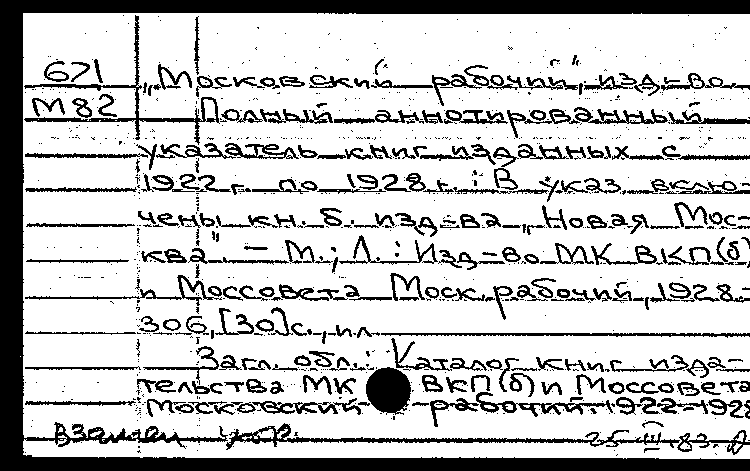 671 „Московский рабочий", изд-во.
М82 Полный аннотированный
указатель книг изданных с
1922 г. по 1928 г. : В указ. вклю-
чены кн. б. изд-ва „Новая Мос-
ква". - М.; Л. : Изд-во МК ВКП(б)
и Моссовета Моск. рабочий, 1928.-
306, [30]с., ил.
Загл. обл.: Каталог книг изда-
тельства МК ВКП(б) и Моссовета
Московский рабочий. 1922-1928
Взамен 25.III.83.